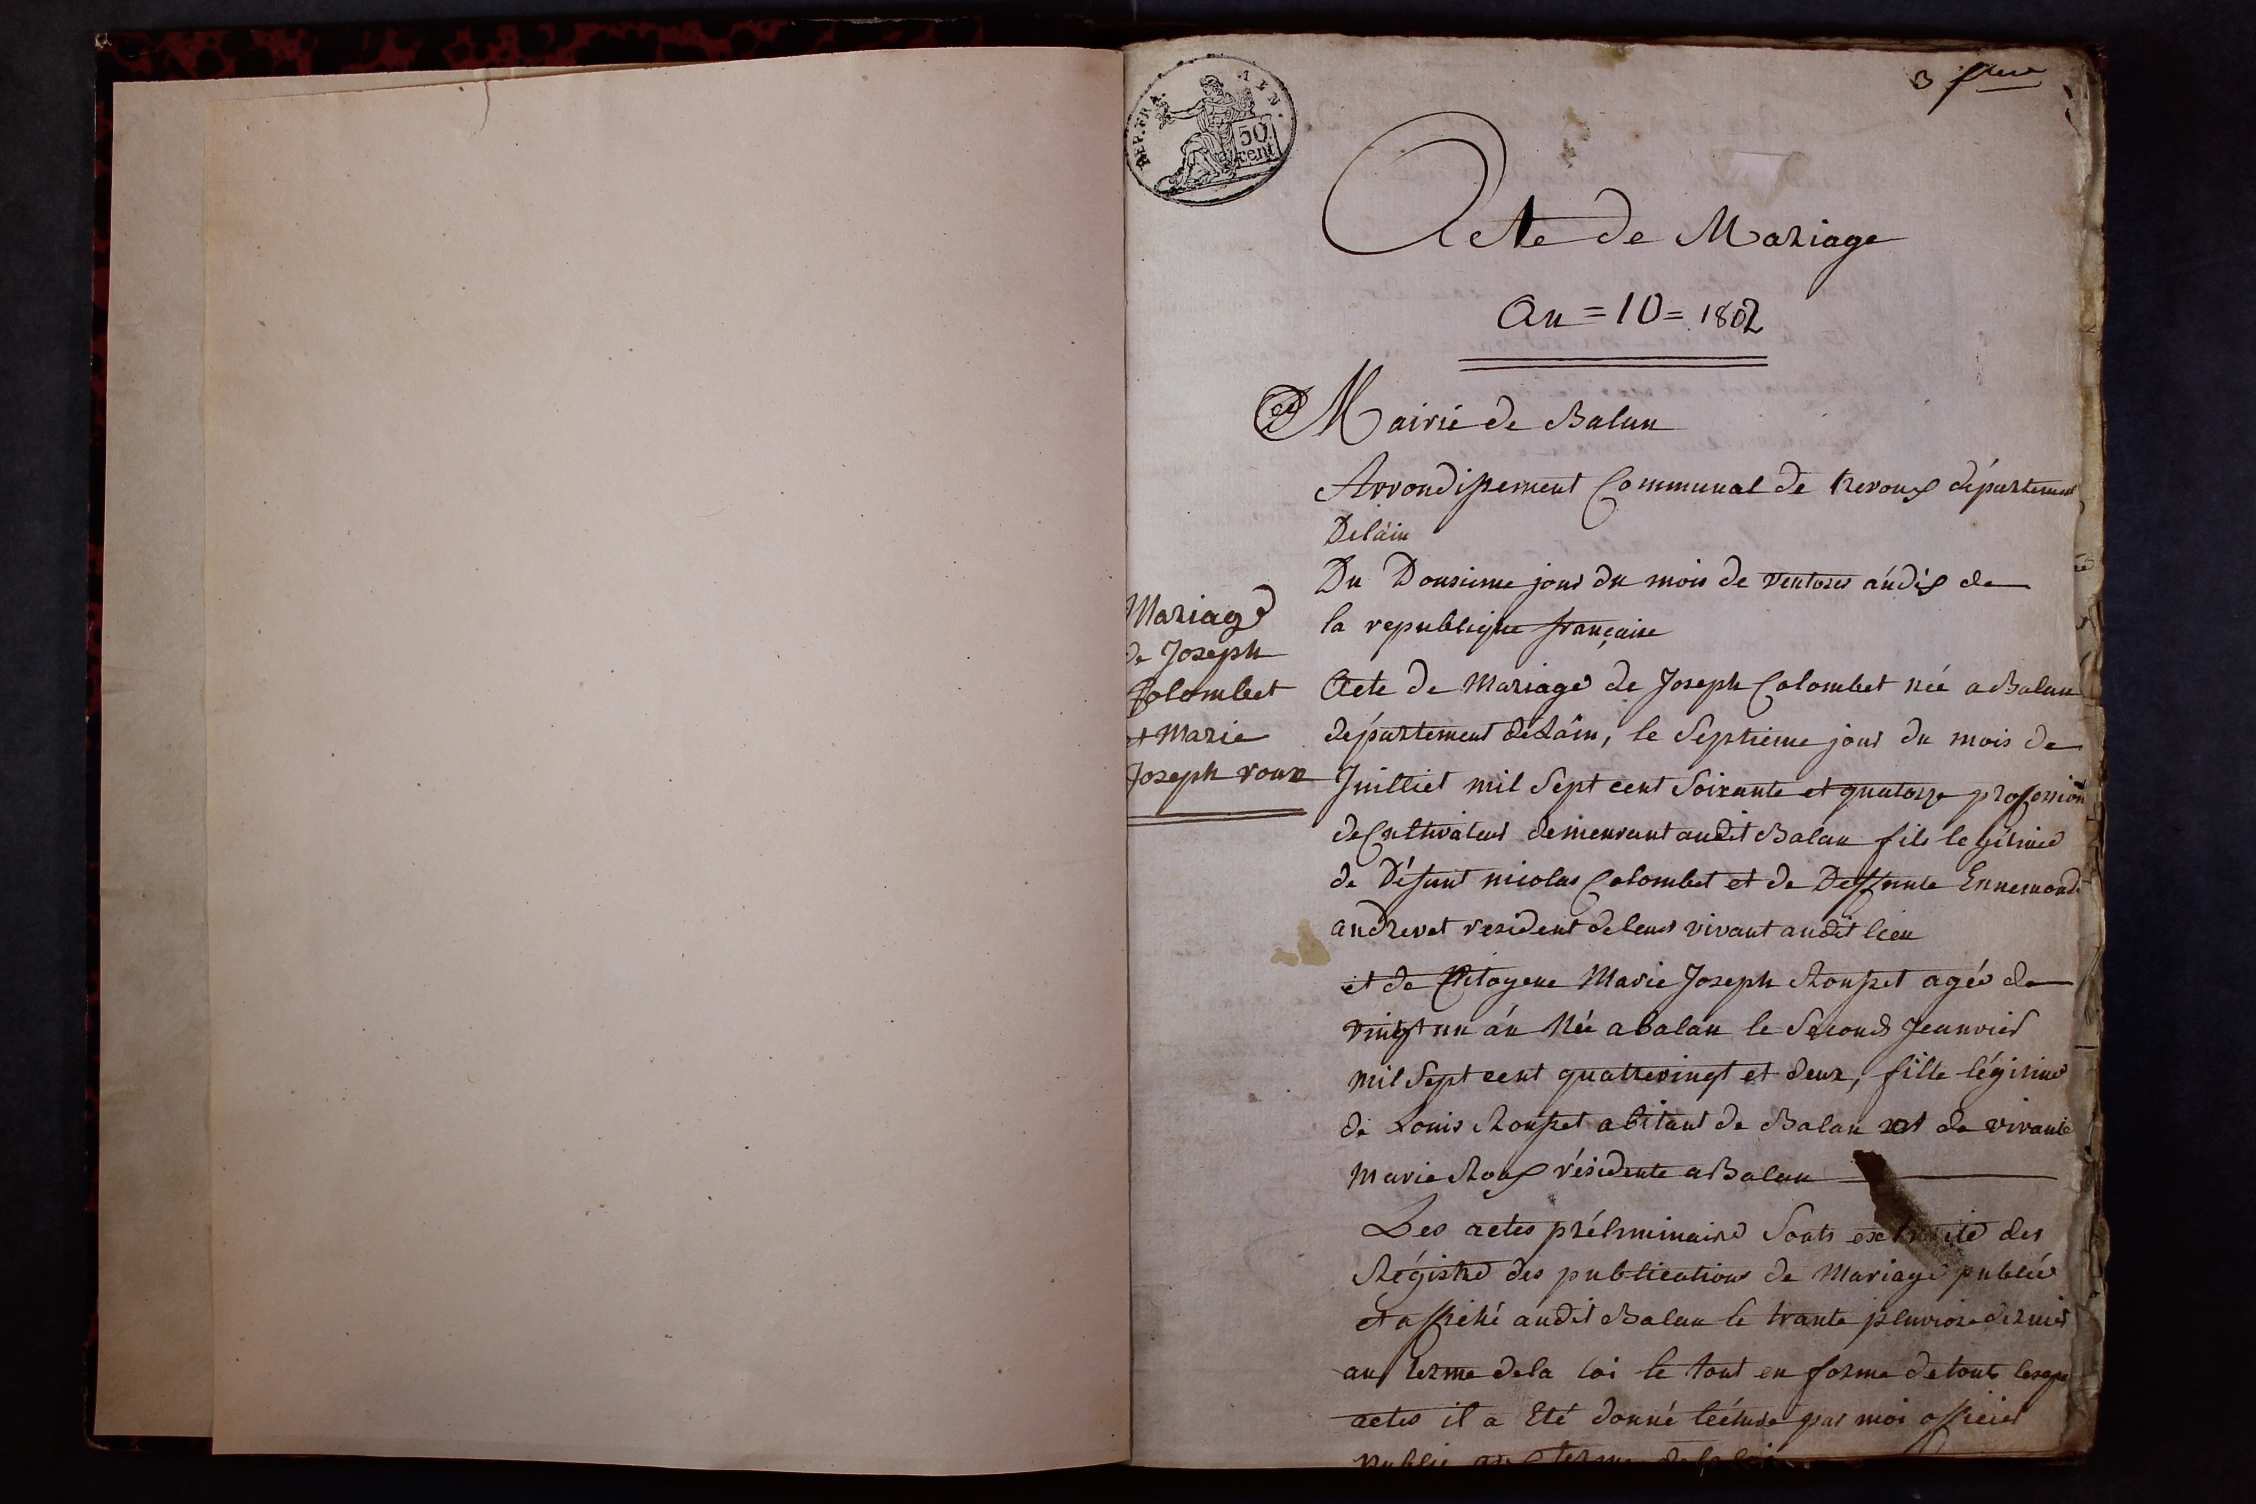 REP. FRA.
50
cent
3
Acte de Mariage
An = 10 = 1802
Mairié de Balan
Arrondissement Communal de trevoux département
Delâin
Du Dousieme jour du mois de ventoses ándix de
la republique française
Mariage
de Joseph
Colombet
et Marie
Joseph roux
Acte de Mariage de Joseph Colombet née a Balan
département de Lâin, le Septieme jour du mois de
Juilliet mil Sept cent Soixante et quatorze profession
de Cultivateur demeurant audit Balan fils legitime
de Défunt nicolas Colombet et de Deffunte Ennemonde
andrevet resident de leur vivant audit lieu
et de Citoyene Marie Joseph Rousset agée de
vingt un án Née a balan le Second Jeanvier
mil Sept cent quattevingt et deux, fille légitime
de Louis Rousset abitant de Balan et de vivante
Marie Roux résidente a Balan
Les actes préliminaire Sonts des
Régistre des publications de Mariage publiée
et affiché audit Balan le trante pluviose dernier
au terme dela loi le tout en forme de touts
actes il a Eté donné lécture par moi officier
public terme de la loi